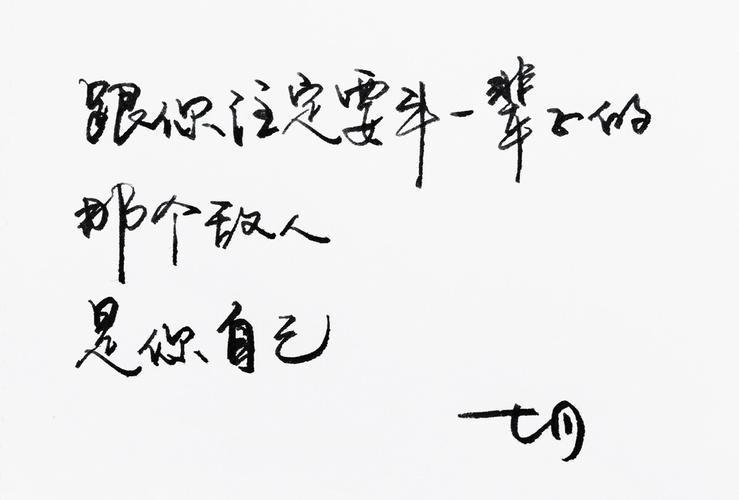 跟你注定要斗一辈子的
那个敌人
是你自己
七月